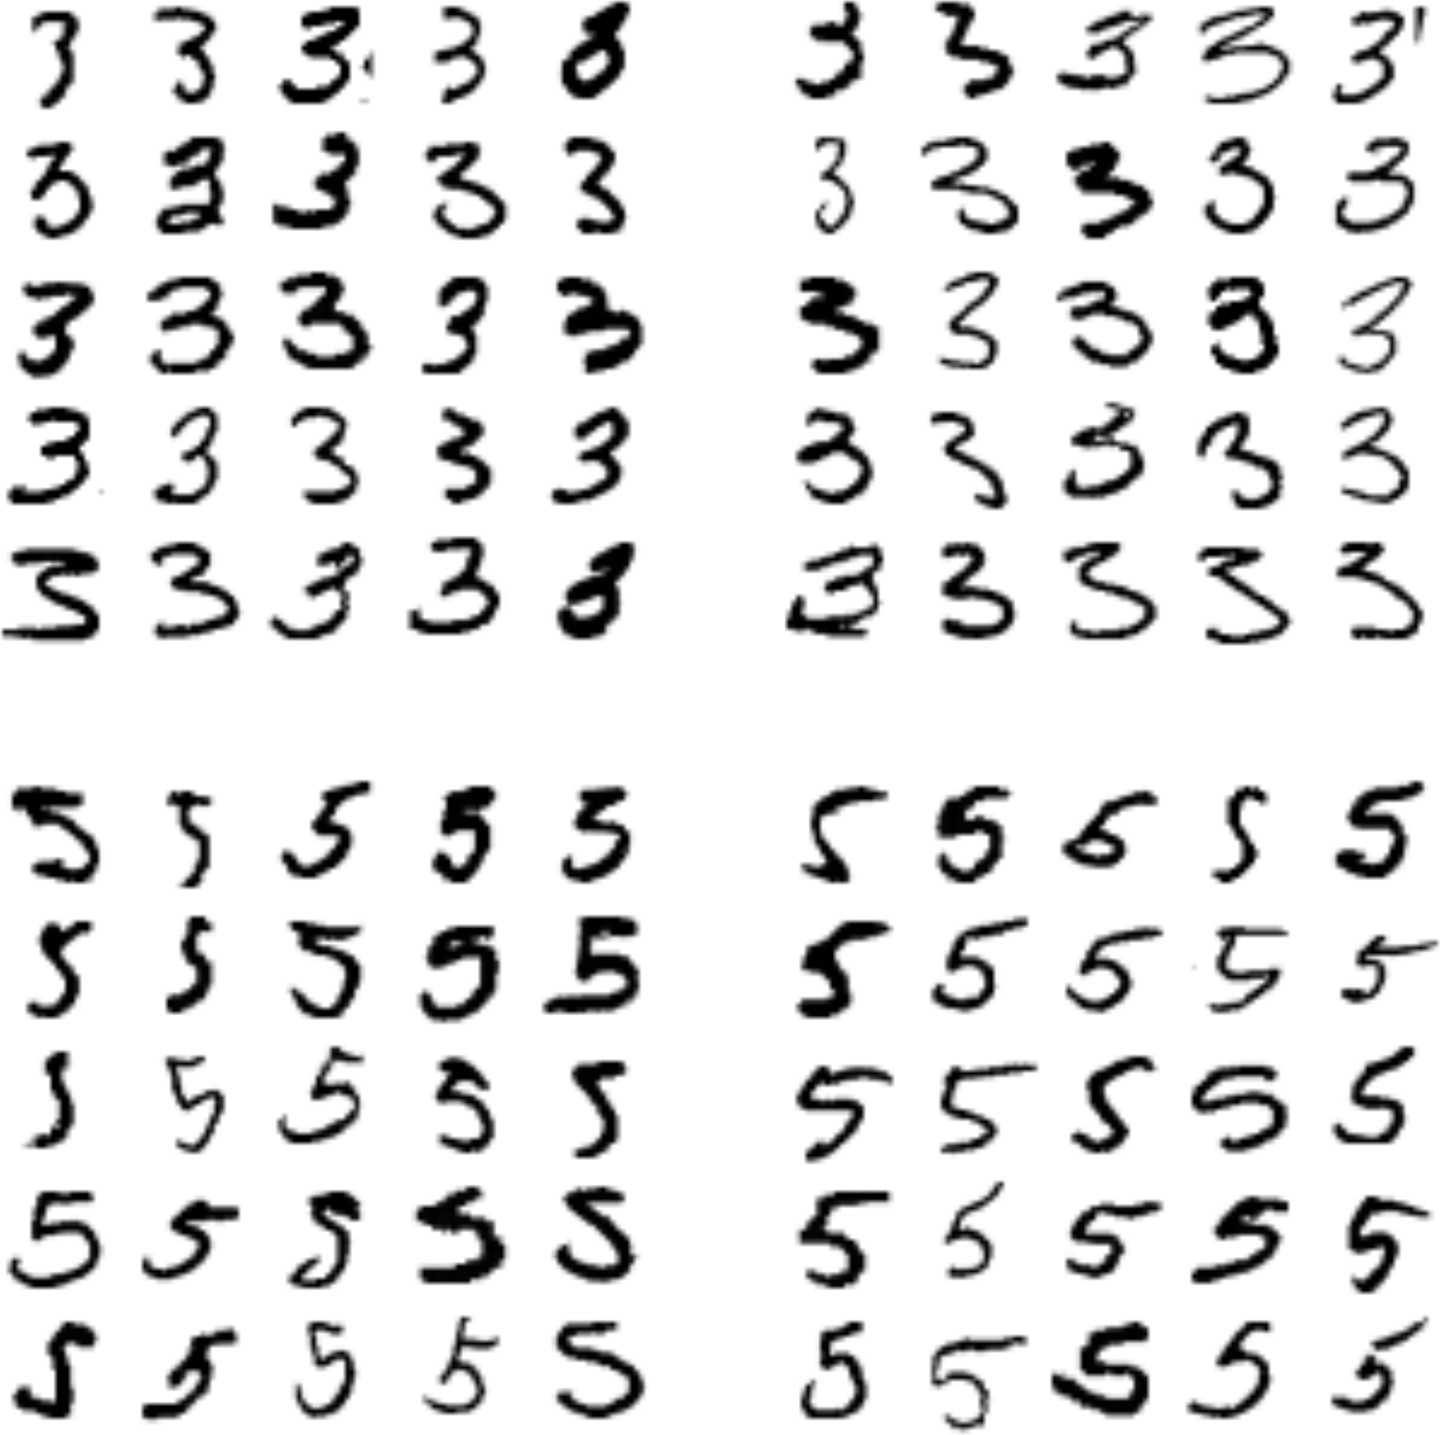 3 3 3 3 8 3 3 3 3 3'
3 3 3 3 3 3 3 3 3 3
3 3 3 3 3 3 3 3 3 3
3 3 3 3 3 3 3 3 3 3
3 3 3 3 8 3 3 3 3 3
5 5 5 5 5 5 5 5 5 5
5 5 5 5 5 5 5 5 5 5
5 5 5 5 5 5 5 5 5 5
5 5 5 5 5 5 5 5 5 5
5 5 5 5 5 5 5 5 5 5